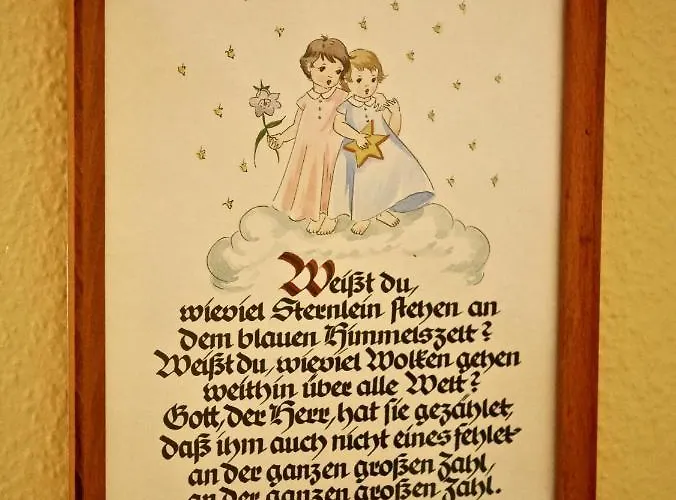 Weißt du,
wieviel Sternlein stehen an
dem blauen Himmelszelt?
Weißt du, wieviel Wolken gehen
weithin über alle Welt?
Gott, der Herr, hat sie gezählet,
daß ihm auch nicht eines fehlet
an der ganzen großen Zahl,
an der ganzen großen Zahl.